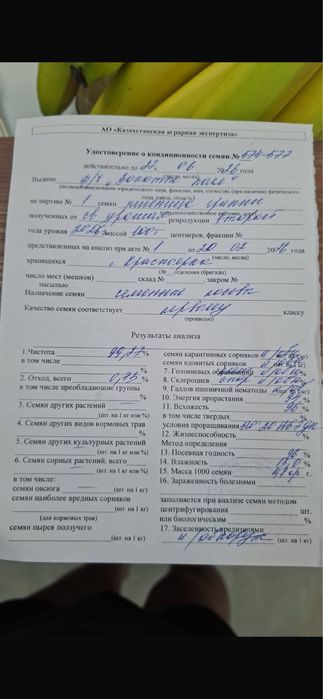 АО «Казахстанская аграрная экспертиза»
Удостоверение о кондиционности семян № 574-577
действительно до 22. 06 2026 года
(число, месяц)
Выдано ф/х "Золотое поле"
(полное наименование юридического лица, фамилия, имя, отчество (при наличии) физического
лица, район, область)
на партию № 1 семян пшеницы
полученных от св урожай репродукции второй
года урожая 2025 массой 100т центнеров, фракции №
представленных на анализ при акте № 1 от 20 02 2026 года
(число, месяц)
хранящихся с
(№ отделения (бригады)
число мест (мешков) склад № , закром №
насыпью
Назначение семян семенные посева
Качество семян соответствует первому классу
(прописью)
Результаты анализа
1.Чистота 99,27 %
в том числе
2. Отход, всего 0,73 %
в том числе преобладающие группы
3. Семян других растений
(шт. на 1 кг или %)
4. Семян других видов кормовых трав
%
5. Семян других культурных растений
(шт. на 1 кг или %)
6. Семян сорных растений, всего
(шт. на 1 кг или %)
в том числе:
семян овсюга (шт. на 1 кг)
семян наиболее вредных сорняков
(для кормовых трав)
семян пырея ползучего
(шт. на 1 кг)
семян карантинных сорняков
семян ядовитых сорняков
7. Головневых
8. Склероциев
9. Галлов пшеничной нематоды
10. Энергия прорастания
11. Всхожесть 96 %
в том числе твердых
условия проращивания
12. Жизнеспособность %
Метод определения
13. Посевная годность 96 %
14. Влажность %
15. Масса 1000 семян гр.
16. Зараженность болезнями
заполняется при анализе семян методом
центрифугирования шт.
или биологическим %
17. Заселенность вредителями
н/обнаруж (шт. на 1 кг)